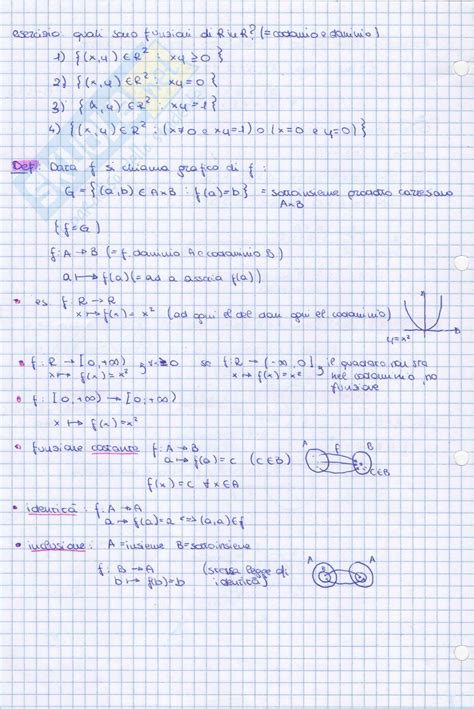 esercizio: quali sono funzioni di R in R? (= codominio e dominio)
1) {(x,y) ∈ R² : xy ≥ 0}
2) {(x,y) ∈ R² : xy = 0}
3) {(x,y) ∈ R² : xy = 1}
4) {(x,y) ∈ R² : (x≠0 e xy=1) o (x=0 e y=0)}
Def: Data f si chiama grafico di f:
G = {(a,b) ∈ A×B : f(a)=b} = sottoinsieme prodotto cartesiano
A×B
{f=G}
f: A → B (= f. dominio A codominio B)
a ↦ f(a) (= ad a associa f(a))
• es f: R → R
x ↦ f(x) = x² (ad ogni el del dom ogni el codominio)
y=x²
• f: R → [0,+∞) se f: R → (-∞,0] il quadrato non sta
x ↦ f(x)=x² x ↦ f(x)=x² nel codominio, no
funzione
• f: [0,+∞) → [0,+∞)
x ↦ f(x)=x²
• funzione costante f: A → B
a ↦ f(a)=c (c∈B)
f(x)=c ∀x∈A
A f B c∈B
• identità: f: A → A
a ↦ f(a)=a ⟺ (a,a)∈f
• inclusione: A = insieme B = sottoinsieme
f: B → A (stessa legge di
b ↦ f(b)=b identità)
A B A